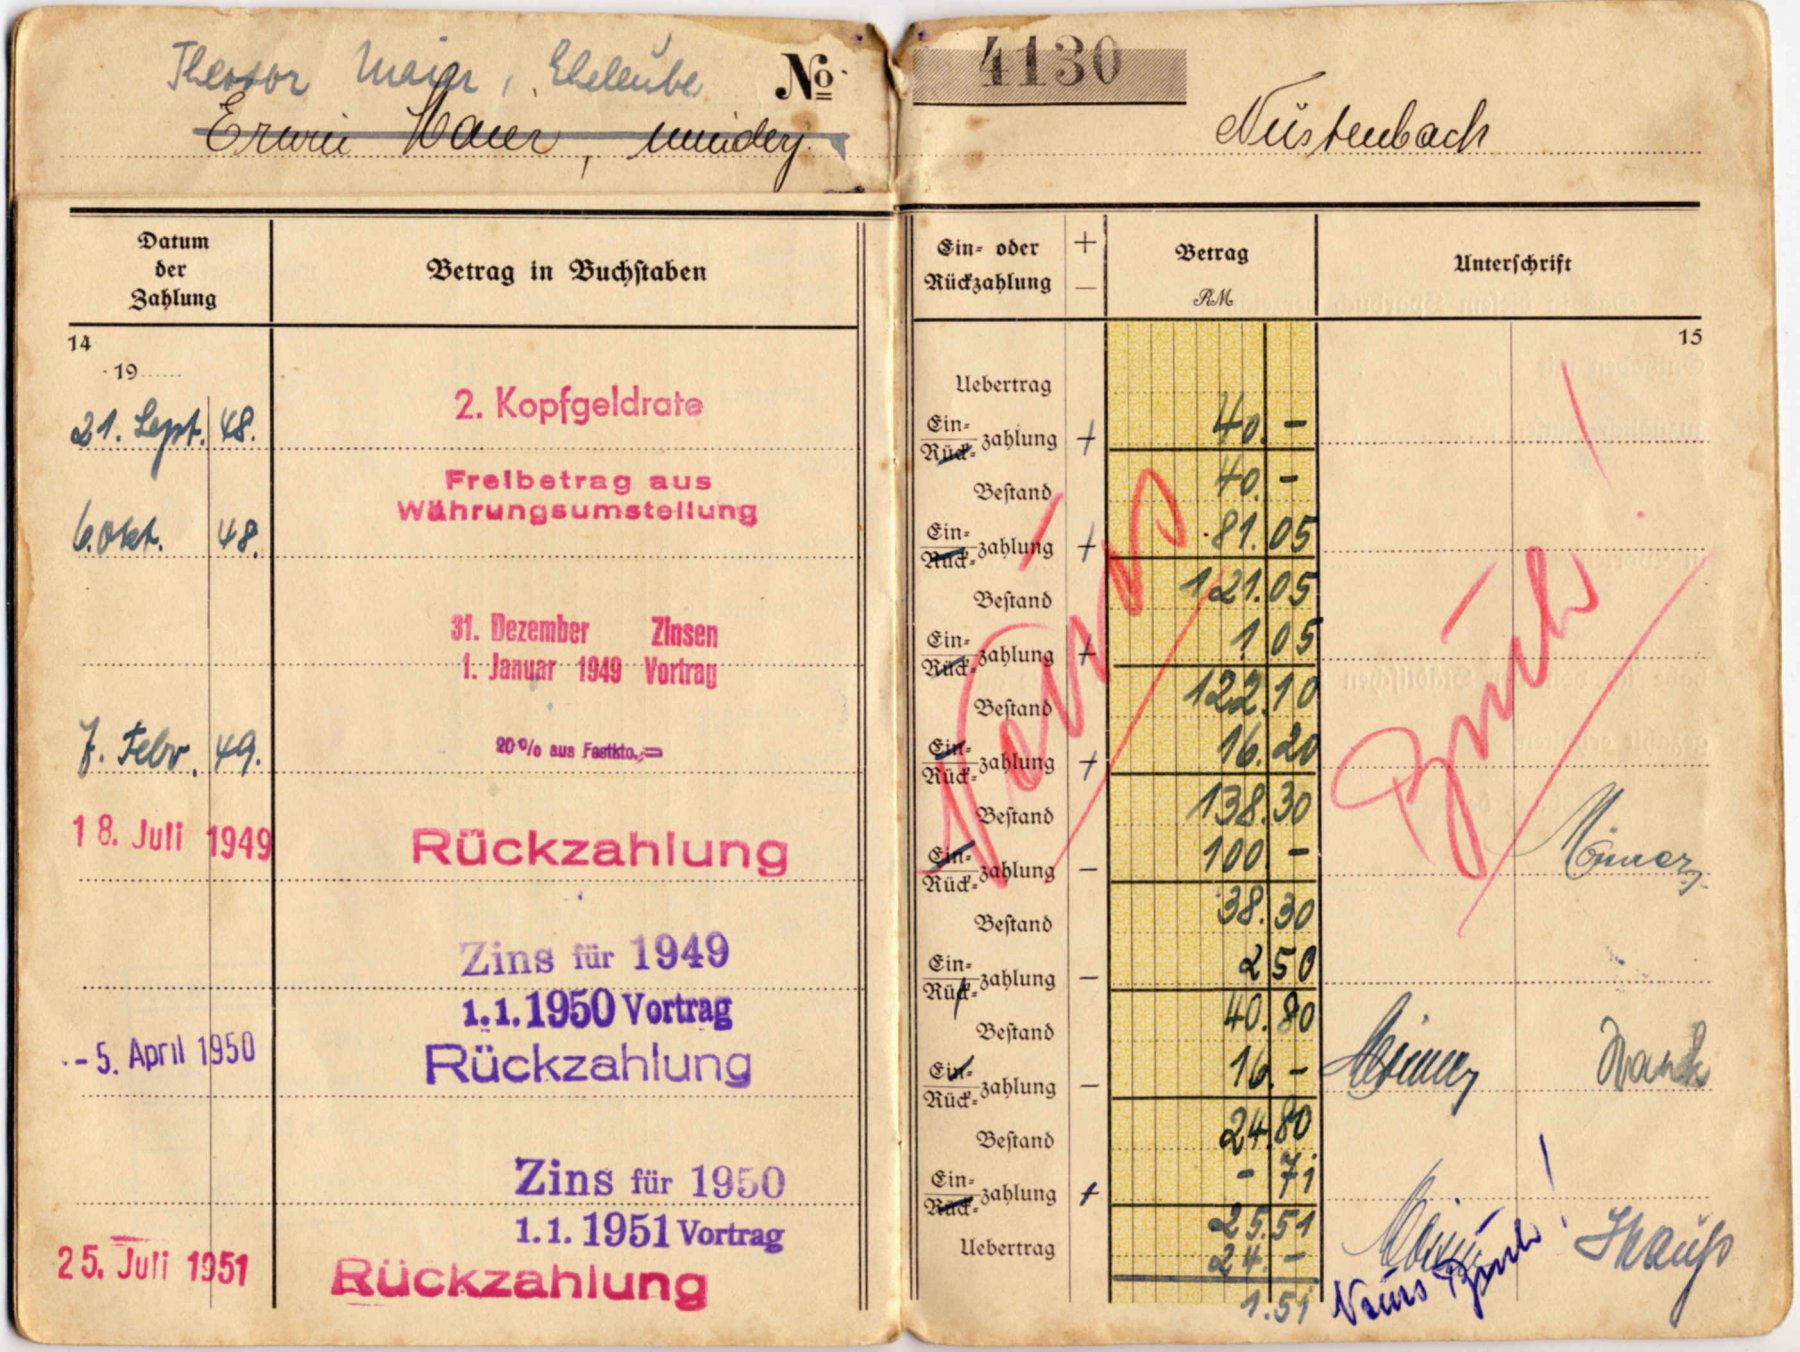 Theodor Maier, Eheleute
Erwin Maier, minderj.
No. 4130
Nüstenbach
Datum
der
Zahlung
Betrag in Buchstaben
Ein- oder
Rückzahlung
+
—
Betrag
RM
Unterschrift
14
15
19
Uebertrag
21. Sept. 48.
2. Kopfgeldrate
Ein-
Rück- zahlung + 40. –
Bestand 40. –
6. Okt. 48.
Freibetrag aus
Währungsumstellung
Ein-
Rück- zahlung + 81.05
Bestand 121.05
31. Dezember Zinsen
1. Januar 1949 Vortrag
Ein-
Rück- zahlung + 1 05
Bestand 122.10
7. Febr. 49.
20% aus Festkto.
Ein-
Rück- zahlung + 16.20
Bestand 138.30
18. Juli 1949
Rückzahlung
Ein-
Rück- zahlung – 100 –
Bestand 38.30
Zins für 1949
1.1.1950 Vortrag
Ein-
Rück- zahlung – 2 50
Bestand 40.80
-5. April 1950
Rückzahlung
Ein-
Rück- zahlung – 16. –
Bestand 24.80
Zins für 1950
1.1.1951 Vortrag
Ein-
Rück- zahlung + – 71
25.51
Uebertrag
25. Juli 1951
Rückzahlung
24. –
1.51
Neues Buch!
Neues Buch!